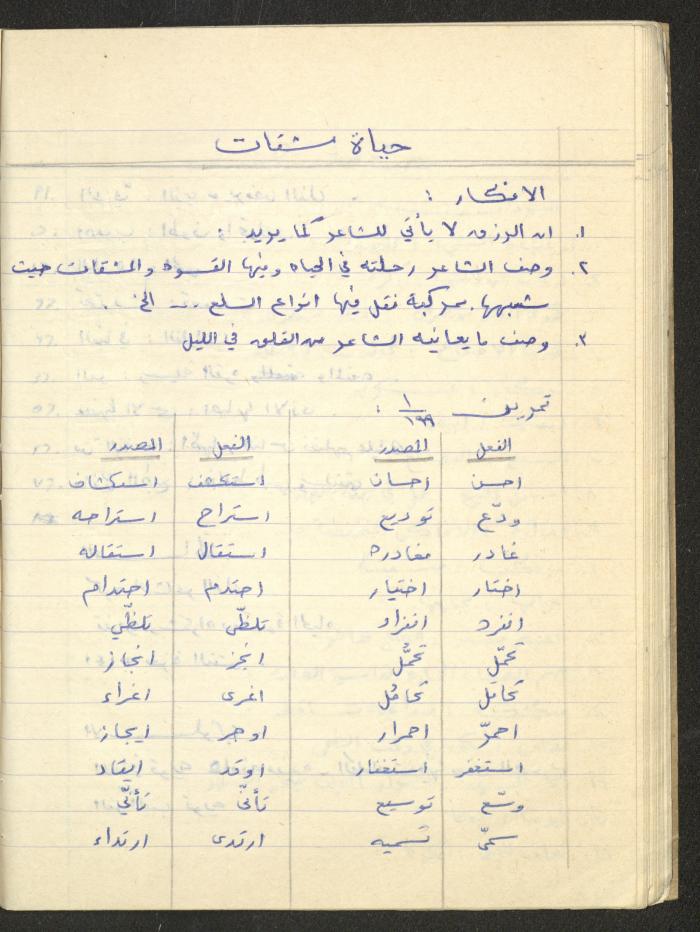 حياة شقات
الافكار :
١. ان الرزق لا يأتي للشاعر كما يريد :
٢. وصف الشاعر رحلته في الحياه وفيها القسوه والمشقات حيث
شبهها بمركبة نقل فيها انواع السلع ... الخ .
٣. وصف ما يعانيه الشاعر من القلق في الليل
تمرين ١/١٩٩ :
الفعل المصدر الفعل المصدر
احسن احسان استكشف استكشاف
ودّع توديع استراح استراحه
غادر مغادره استقال استقاله
اختار اختيار احتدم احتدام
انفرد انفراد تلظّى تلظّي
تحمّل تحمُّل انجز انجاز
تحامَل تحامُل اغرى اغراء
احمرّ احمرار اوجز ايجاز
استغفر استغفار اوقد ايقاد
وسّع توسيع تأنّى تأنّي
سمّى تسميه ارتدى ارتداء